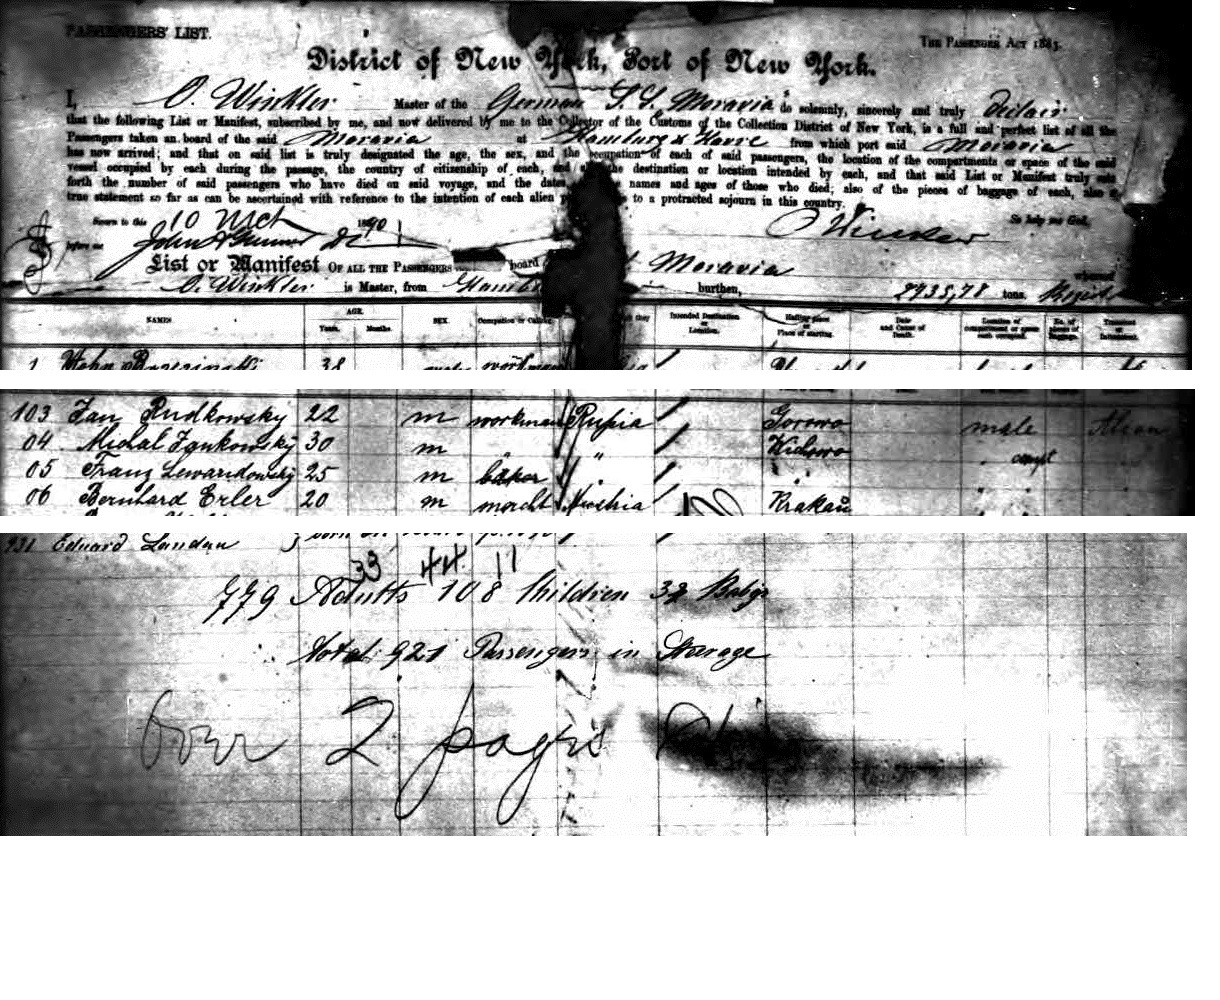 PASSENGERS' LIST.
THE PASSENGER ACT 1883.
District of New York, Port of New York.
I, O. Winkler Master of the German S. S. Moravia do solemnly, sincerely and truly
that the following List or Manifest, subscribed by me, and now delivered by me to the Collector of the Customs of the Collection District of New York, is a full and perfect list of all the
Passengers taken on board of the said Moravia at Hamburg & Havre from which port said Moravia
has now arrived; and that on said list is truly designated the age, the sex, and the occupation of each of said passengers, the location of the compartments or space of the said
vessel occupied by each during the passage, the country of citizenship of each, and the destination or location intended by each, and that said List or Manifest truly sets
forth the number of said passengers who have died on said voyage, and the dates names and ages of those who died; also of the pieces of baggage of each, also a
true statement so far as can be ascertained with reference to the intention of each alien to a protracted sojourn in this country.
Sworn to this 10 1890 So help me God,
before me O Winkler
List or Manifest OF ALL THE PASSENGERS board Moravia whereof
O. Winkler is Master, from burthen, 2735,78 tons.
NAMES AGE. Years. Months. SEX. Occupation or Calling. they Intended Destination or Location. Place of starting. Date and Cause of Death. Location of compartment or space each occupied. No. of pieces of Baggage.
1 38 workman
103 Jan Rudkowsky 22 m workman Russia Gorowo male
04 Michal Jankowsky 30 m " Kichowo
05 Franz Lewandowsky 25 m baker " "
06 Bernhard Erler 20 m Austria Krakau
931 Eduard Landau
33 44 11
779 Adults 108 Children 32 Babys
total 921 Passengers in Sterage
Over 2 pages